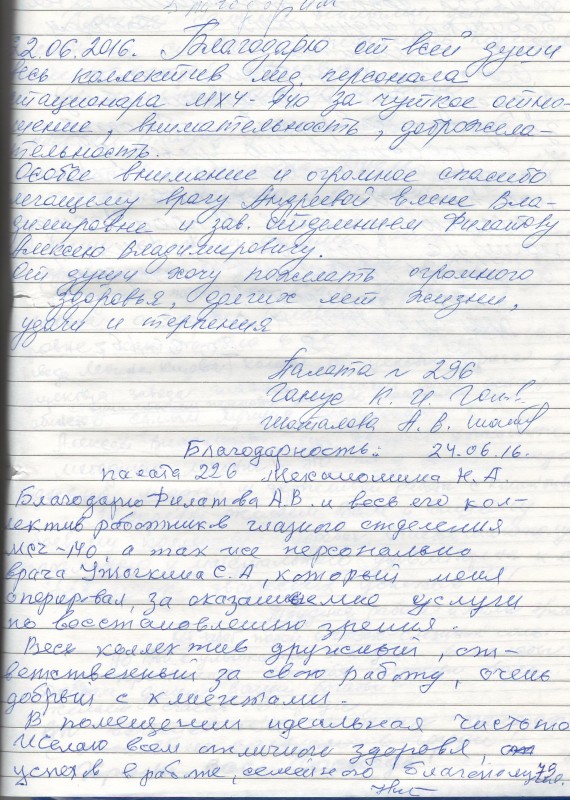 Благодарю
22.06.2016. Благодарю от всей души
весь коллектив мед. персонала
стационара МХЧ-140 за чуткое отно-
шение, внимательность, доброжела-
тельность.
Особое внимание и огромное спасибо
лечащему врачу Андреевой Елене Вла-
димировне и зав. отделением Филатову
Алексею Владимировичу.
От души хочу пожелать огромного
здоровья, долгих лет жизни,
удачи и терпения
Палата № 296
Ганус К. И.
Шаталова А. В.
Благодарность: 24.06.16.
палата 226 Н. А.
Благодарю Филатова А.В. и весь его кол-
лектив работников глазного отделения
мсч-140, а так же персонально
врача С.А, который меня
оперировал, за оказанные мне услуги
по восстановлению зрения.
Весь коллектив дружный, от-
ветственный за свою работу, очень
добрый с клиентами.
В помещении идеальная чистота
Желаю всем отличного здоровя,
успехов в работе, семейного благополучия.